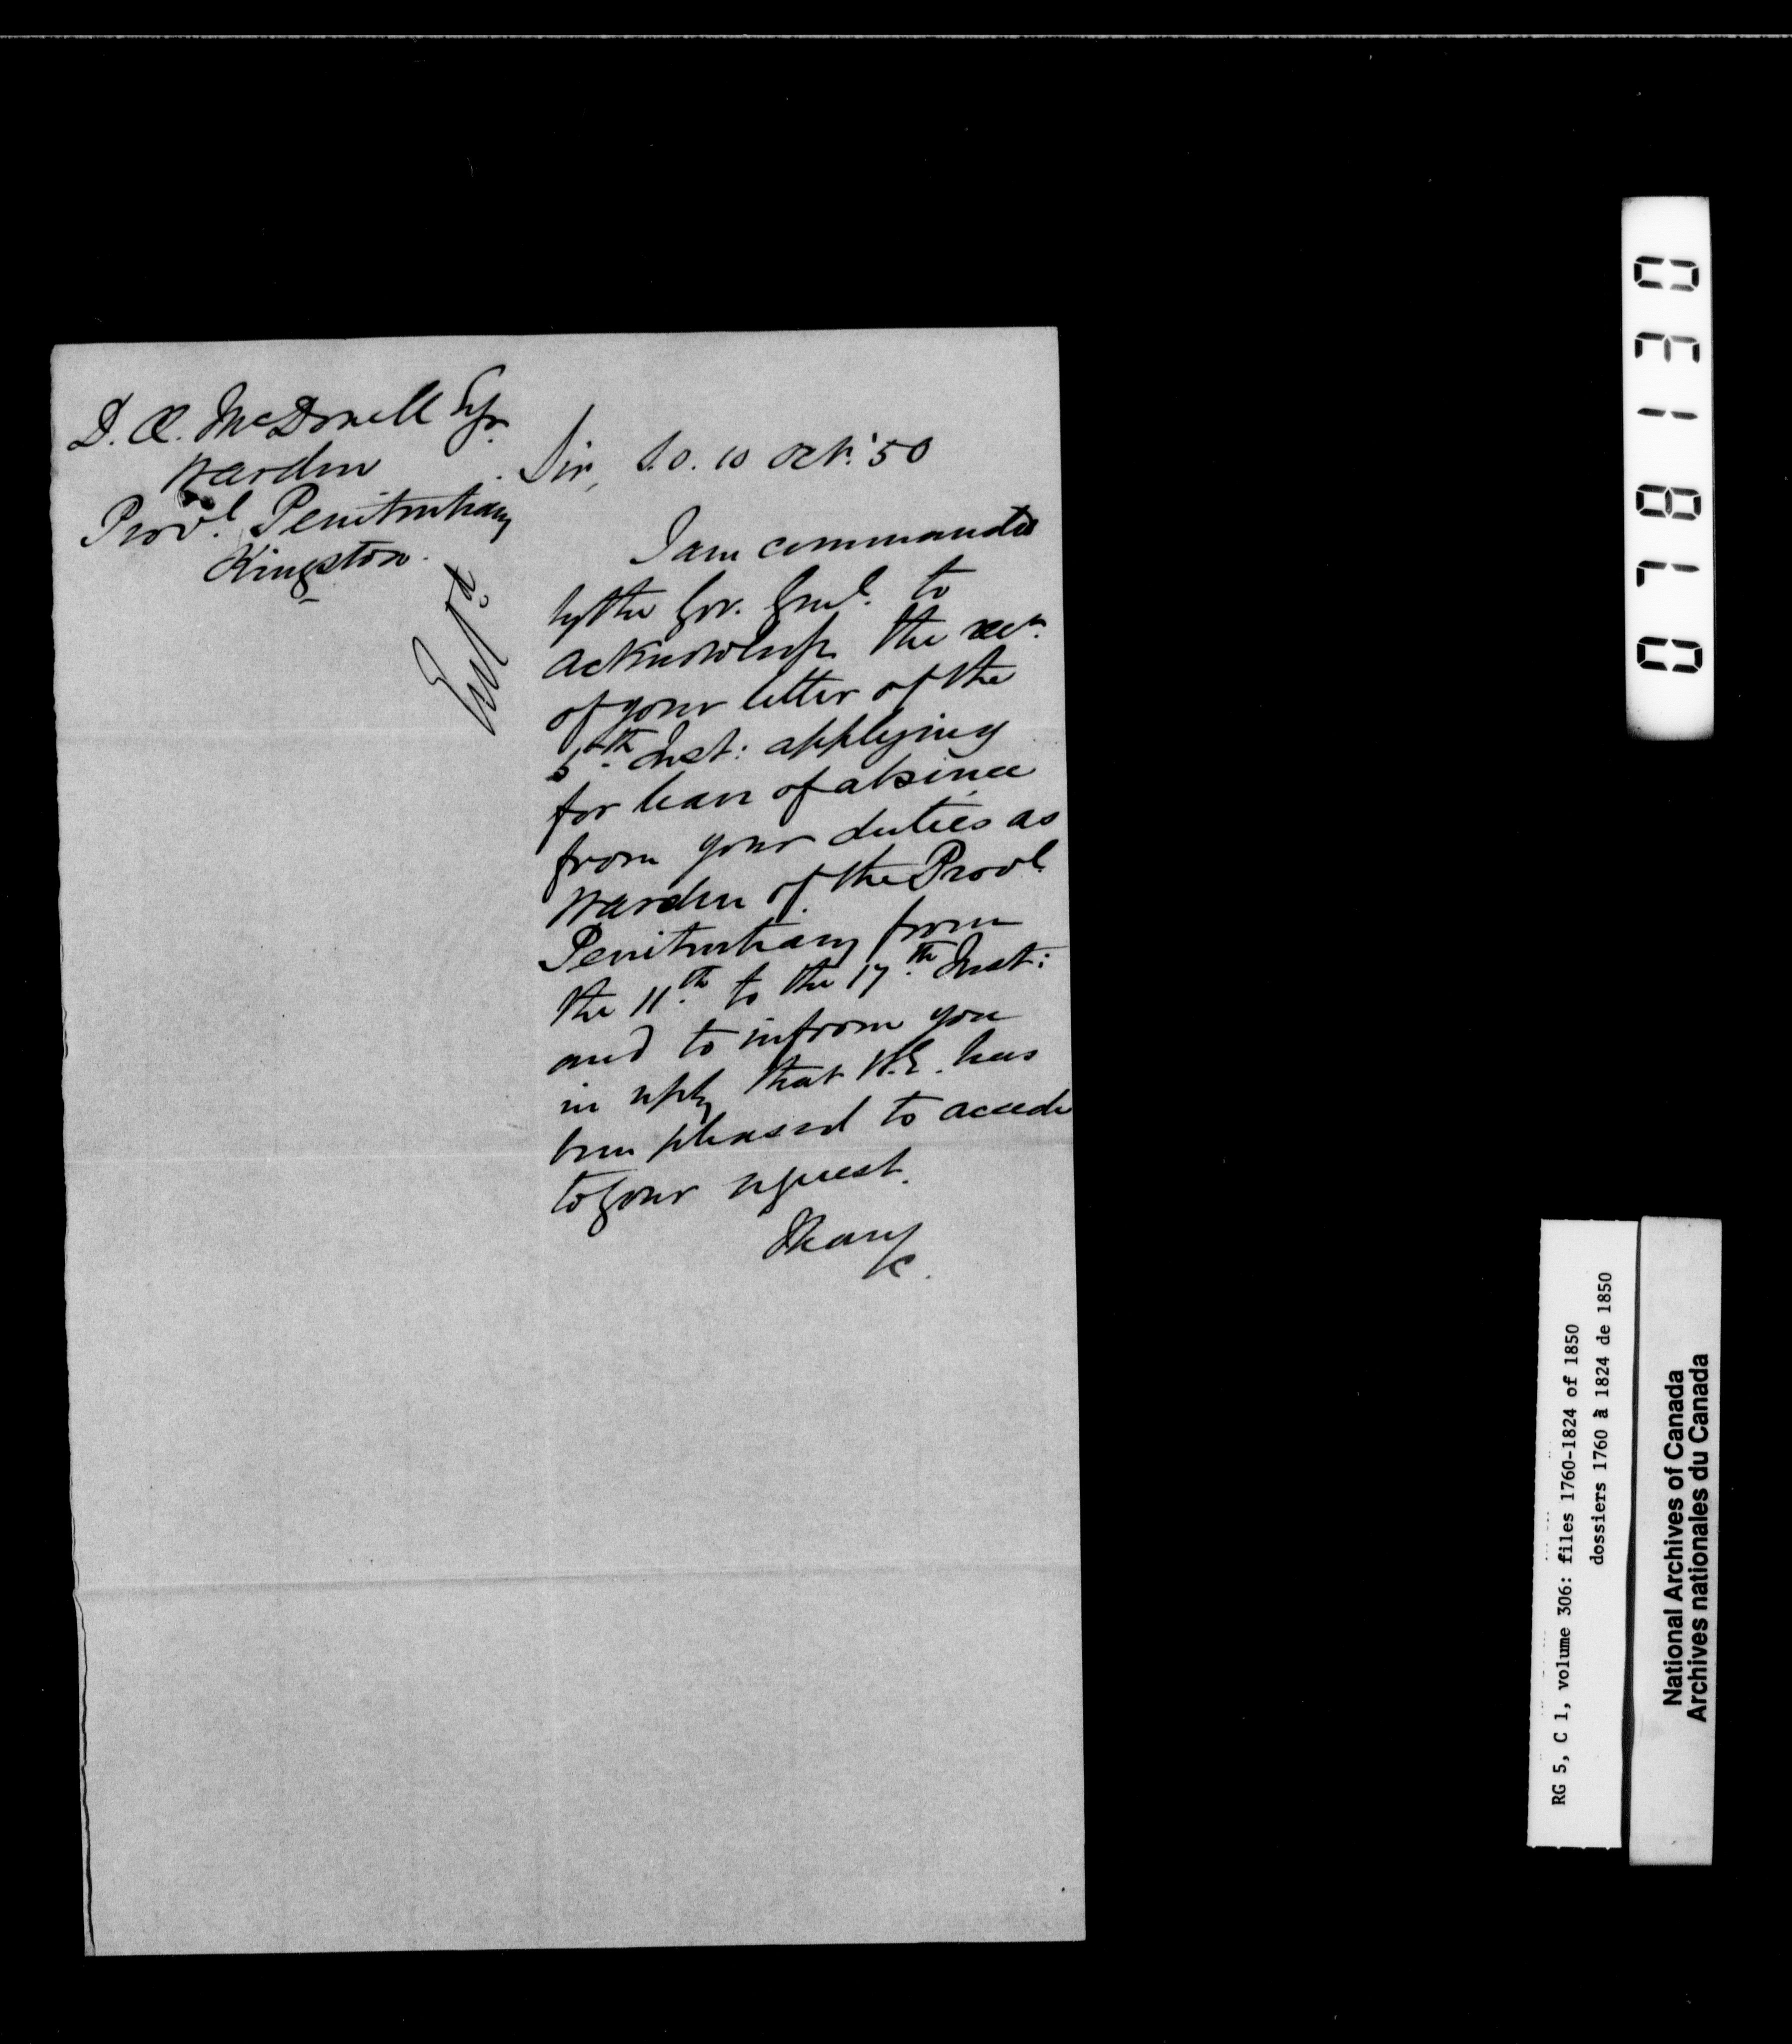 D. Æ. McDonell Esqr.
Warden
Provl. Penitentiary
Kingston.
Entd
Sir, S.O. 10 Oct. '50
I am commanded
by the Gov. Genl. to
acknowledge the rect.
of your letter of the
5th Inst: applying
for leave of absence
from your duties as
Warden of the Provl.
Penitentiary from
the 11th to the 17th Inst:
and to inform you
in reply that H.E. has
been pleased to accede
to your request.
I have
&c.
078130
RG 5, C 1, volume 306: files 1760-1824 of 1850
dossiers 1760 à 1824 de 1850
National Archives of Canada
Archives nationales du Canada